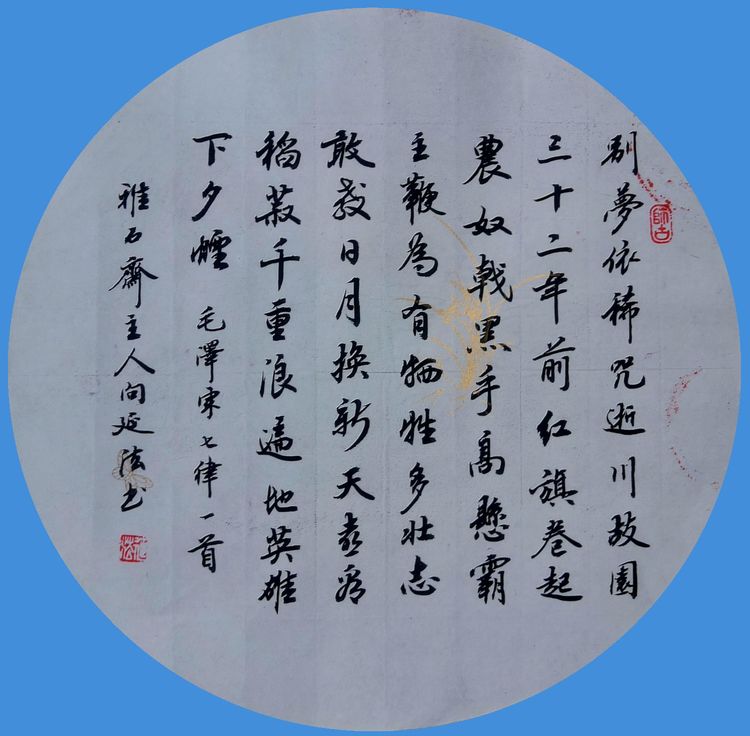 别夢依稀咒逝川故園
三十二年前红旗卷起
農奴戟黑手高懸霸
主鞭為有牺牲多壮志
敢教日月换新天喜看
稻菽千重浪遍地英雄
下夕煙 毛澤東七律一首
雅石齋主人向延法书
師古